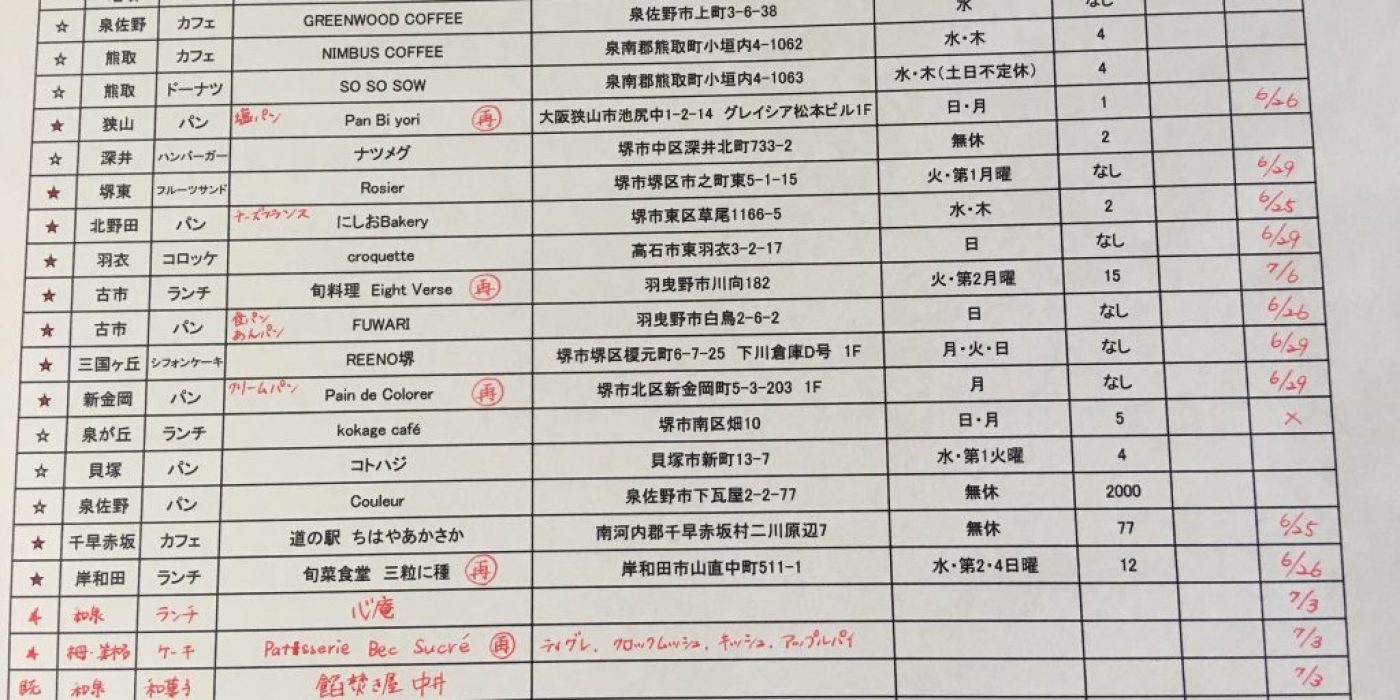 ☆ 泉佐野 カフェ GREENWOOD COFFEE 泉佐野市上町3-6-38 水 なし
☆ 熊取 カフェ NIMBUS COFFEE 泉南郡熊取町小垣内4-1062 水・木 4
☆ 熊取 ドーナツ SO SO SOW 泉南郡熊取町小垣内4-1063 水・木(土日不定休) 4
★ 狭山 パン 塩パン Pan Bi yori 再 大阪狭山市池尻中1-2-14 グレイシア松本ビル1F 日・月 1 6/26
☆ 深井 ハンバーガー ナツメグ 堺市中区深井北町733-2 無休 2
★ 堺東 フルーツサンド Rosier 堺市堺区市之町東5-1-15 火・第1月曜 なし 6/29
★ 北野田 パン チーズフランス にしおBakery 堺市東区草尾1166-5 水・木 2 6/25
★ 羽衣 コロッケ croquette 高石市東羽衣3-2-17 日 なし 6/29
★ 古市 ランチ 旬料理 Eight Verse 再 羽曳野市川向182 火・第2月曜 15 7/6
★ 古市 パン 食パン あんパン FUWARI 羽曳野市白鳥2-6-2 日 なし 6/26
★ 三国ヶ丘 シフォンケーキ REENO堺 堺市堺区榎元町6-7-25 下川倉庫D号 1F 月・火・日 なし 6/29
★ 新金岡 パン クリームパン Pain de Colorer 再 堺市北区新金岡町5-3-203 1F 月 なし 6/29
☆ 泉が丘 ランチ kokage café 堺市南区畑10 日・月 5 ×
☆ 貝塚 パン コトハジ 貝塚市新町13-7 水・第1火曜 4
☆ 泉佐野 パン Couleur 泉佐野市下瓦屋2-2-77 無休 2000
★ 千早赤坂 カフェ 道の駅 ちはやあかさか 南河内郡千早赤坂村二川原辺7 無休 77 6/25
★ 岸和田 ランチ 旬菜食堂 三粒に種 再 岸和田市山直中町511-1 水・第2・4日曜 12 6/26
和泉 ランチ 心庵 7/3
ケーキ Patisserie Bec Sucré 再 ティグレ、クロックムッシュ、キッシュ、アップルパイ 7/3
既 和泉 和菓子 餡焚き屋 中井 7/3